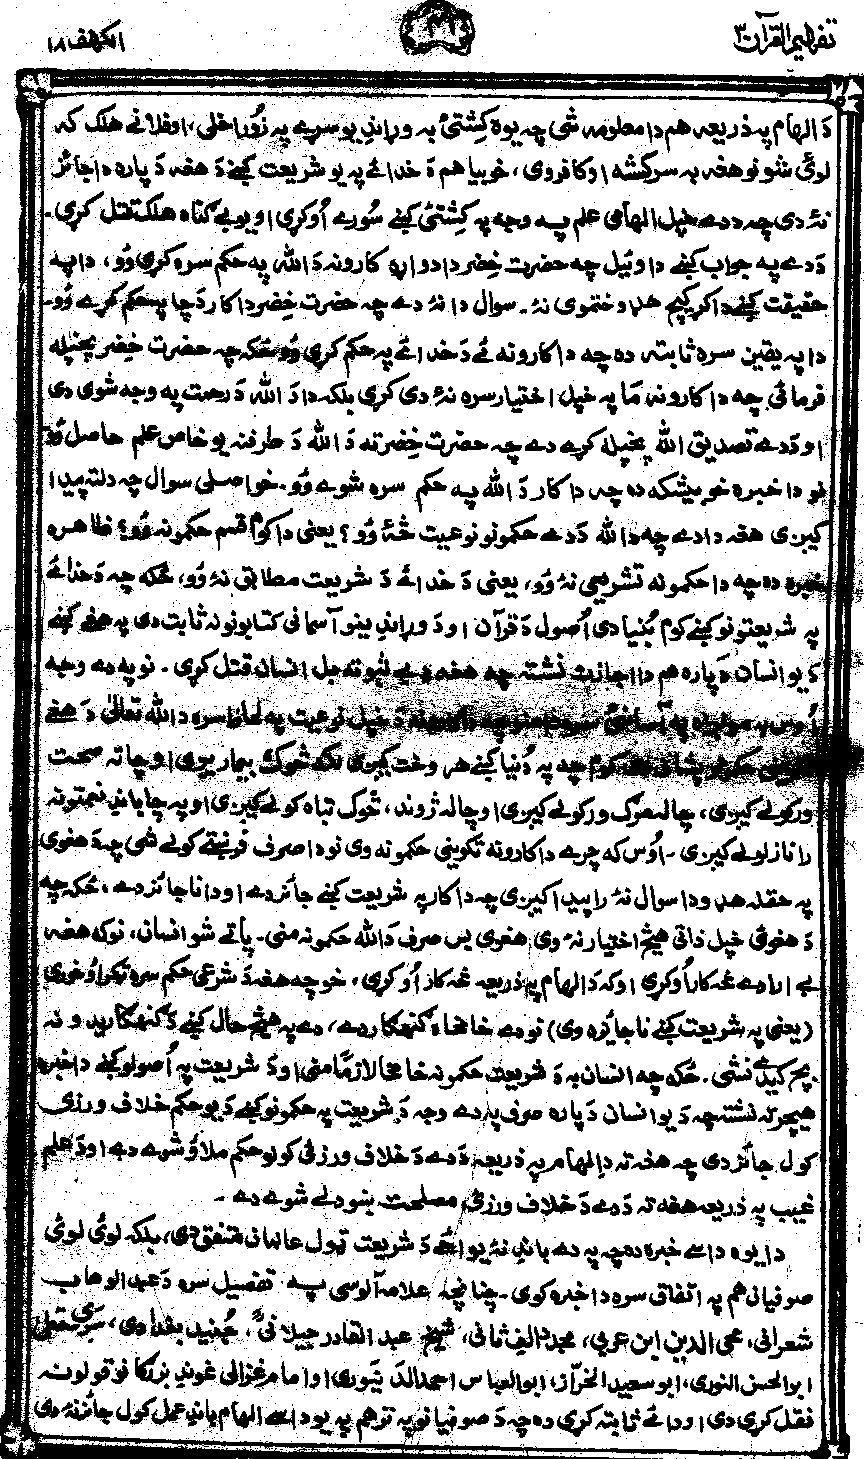 تفهيم القرآن ۳
الکهف ۱۸
دَ الهام په ذريعه هم دا معلومه شی چه يوه کِشتئ به وړاندِ يو سړے په زُوراخلی، او فلانے هلک که
لوئی شو نو هغه به سرکشه او کافر وی، خو بيا هم دَ خدائے په يو شريعت کښے دَ هغه دَ پاره دا جائز
نۀ دی چه د دے خپل الهامی علم په وجه په کِشتئ کښے سُورے اُوکړی او يو بے ګناه هلک قتل کړی۔
دَ دے په جواب کښے دا وئيل چه حضرت خِضر دا دواړه کارونه دَ الله په حکم سره کړی وُو، دا په
حقيقت کښے دا کړکيچ هډو ختموی نۀ۔ سوال دا نۀ دے چه حضرت خِضر دا کار دَ چا په حکم کړے وُو۔
دا په يقين سره ثابته ده چه دا کارونه ئے دَ خدائے په حکم کړی وُو ځکه چه حضرت خِضر پخپله
فرمائی چه دا کارونه مَا په خپل اختيار سره نۀ دی کړی بلکه دا دَ الله دَ رحمت په وجه شوی دی
او دَ دے تصديق الله پخپله کړے دے چه حضرت خِضر ته دَ الله دَ طرفنه يو خاص علم حاصل وُو
نو دا خبره خو بيشکه ده چه دا کار دَ الله په حکم سره شوے وُو۔ خو اصلی سوال چه دلته پيدا
کيږی هغه دا دے چه دالله دَ دے حکمونو نوعيت څۀ وُو؟ يعنی دا کوم قسم حکمونه وُو؟ ظاهره
خبره ده چه دا حکمونه تشريعی نۀ وُو، يعنی دَ خدائے دَ شريعت مطابق نۀ وُو، ځکه چه دَ خدائے
په شريعتونو کښے کوم بُنيادی اُصول دَ قرآن او دَ وړاندِ ينو آسمانی کتابونو نه ثابت دی په هغے کښے
دَ يو انسان دَ پاره هم دا اجازت نشته چه هغه دِ بے ثبوته بل انسان قتل کړی۔ نو په دے وجه
سره دالله تعالیٰ دَ هغے
چه په دُنيا کښے هر وخت کيږی لکه څوک بيماريږی او چا ته صحت
ورکولے کيږی، چا له مرګ ورکولے کيږی او چا له ژوند، څوک تباه کولے کيږی او په چا باندِ نعمتونه
را نازلولے کيږی۔ اُوس که چرے دا کارونه تکوينی حکمونه وی نو دا صرف فرښتے کولے شی چه دَ هغوی
په حقله هډو دا سوال نۀ را پيدا کيږی چه دا کار په شريعت کښے جائز دے او دا ناجائز دے، ځکه چه
دَ هغوئ خپل ذاتی هيڅ اختيار نۀ وی هغوی بس صرف دَ الله حکمونه منی۔ پاتے شو انسان، نو که هغه
بے ارادے څه کار اُوکړی او که دَ الهام په ذريعه څه کار اُوکړی، خو چه هغه دَ شرعی حکم سره ټکر اُوخوری
(يعنی په شريعت کښے ناجائزه وی) نو دے خامخاه ګنهګار دے، دے په هيڅ حال کښے دَ ګنهګاريدو نه
بچ کيدے نشی۔ ځکه چه انسان به دَ شريعت حکمونه خامخا لازمًا منی او دَ شريعت په اُصولو کښے دا خبره
هيچرته نشته چه دَ يو انسان دَ پاره صرف په دے وجه دَ شريعت په حکمونو کښے دَ يو حکم خلاف ورزی
کول جائز دی چه هغه ته دِ الهام په ذريعه دَ دے دَ خلاف ورزئ کولو حکم ملاؤ شوے دے او دَ علم
غيب په ذريعه هغه ته دَ دے دَ خلاف ورزئ مصلحت ښودلے شوے دے۔
دا يوه داسے خبره ده چه په دے باندِ نۀ يواځے دَ شريعت ټول عالمان متفق دی، بلکه لوئ لوئ
صوفيان هم په اتفاق سره دا خبره کوی۔ چنانچه علامه آلوسی په تفصيل سره دَ عبدالوهاب
شعرانی، محی الدين ابن عربی، مجدد الف ثانی، شيخ عبد القادر جيلانی، جُنيد بغدادی، سری سقطی
ابوالحسن النوری، ابوسعيد الخرّاز، ابوالعباس احمد الدَّينوری او امام غزالی غوندِ بزرګانو قولونه
نقل کړی دی او دائے ثابته کړی ده چه دَ صوفيانو په نزد هم په يو داسے الهام باندِ عمل کول جائز نۀ دی